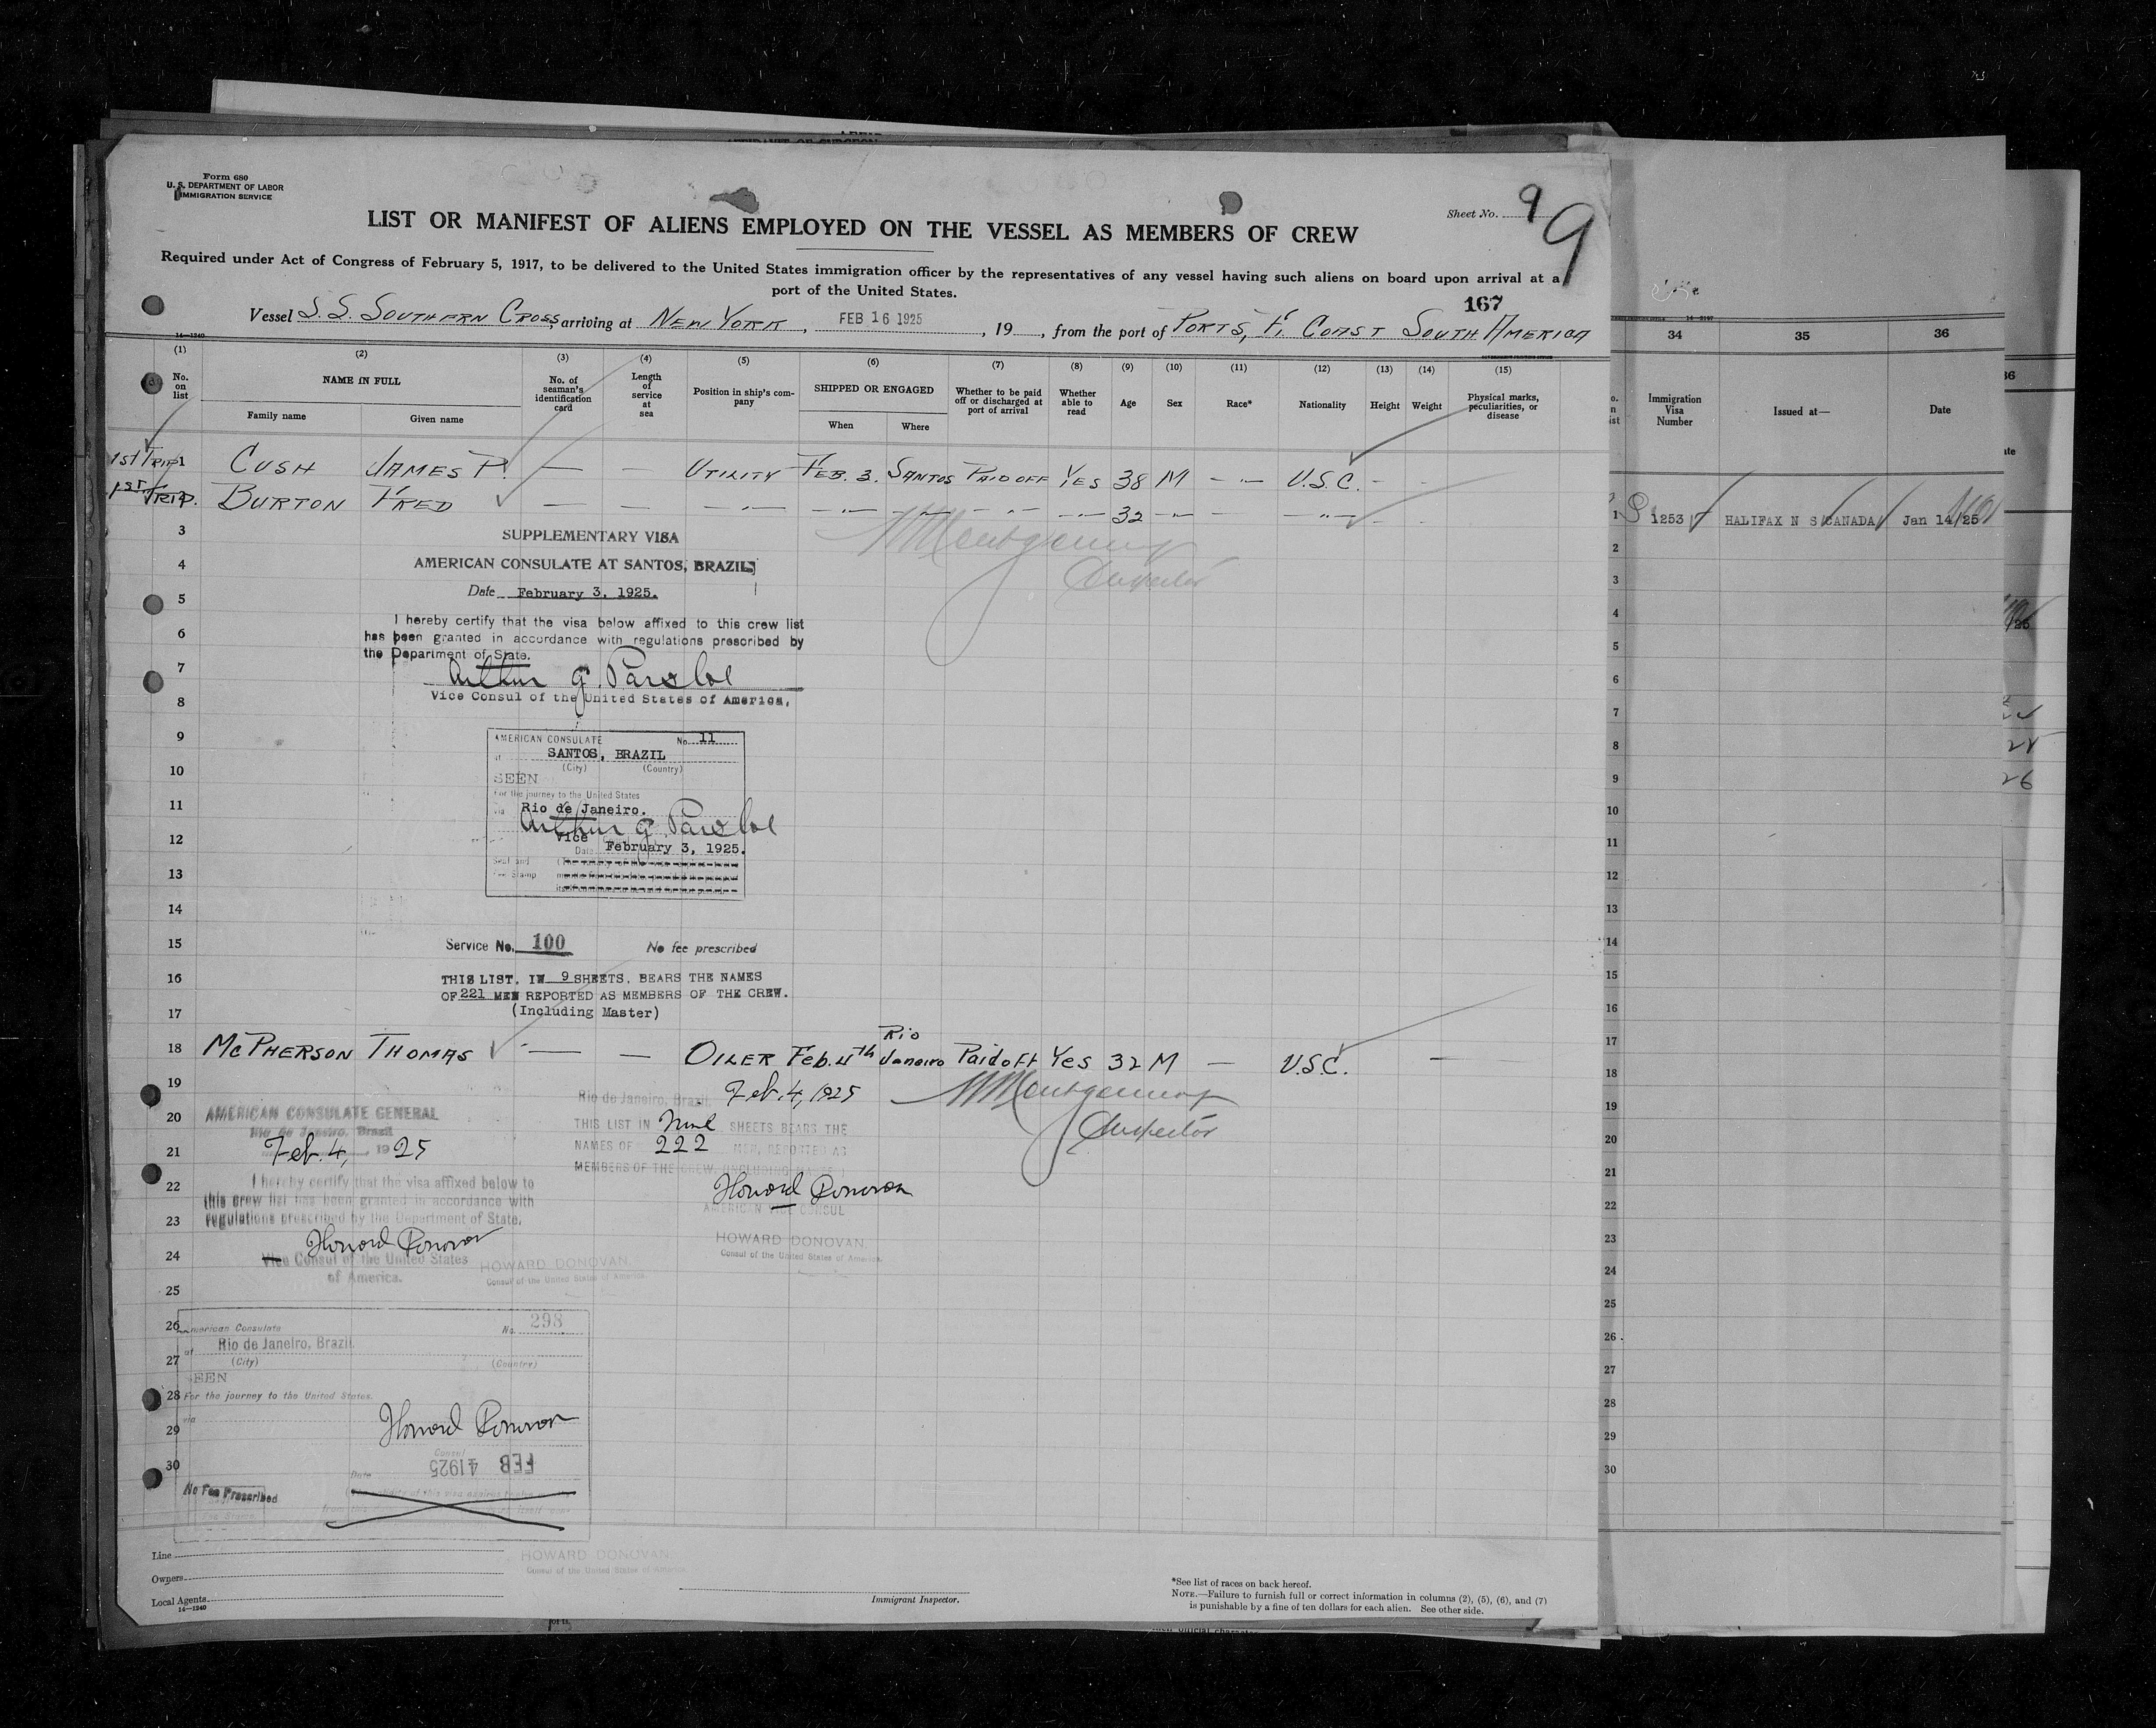 Form 680
U. S. DEPARTMENT OF LABOR
IMMIGRATION SERVICE
Sheet No. 9
9
LIST OR MANIFEST OF ALIENS EMPLOYED ON THE VESSEL AS MEMBERS OF CREW
Required under Act of Congress of February 5, 1917, to be delivered to the United States immigration officer by the representatives of any vessel having such aliens on board upon arrival at a
port of the United States.
167
Vessel S.S. SOUTHERN CROSS, arriving at NEW YORK, FEB 16 1925, 19 , from the port of PORTS, E. COAST SOUTH AMERICA
14—1240
(1) (2) (3) (4) (5) (6) (7) (8) (9) (10) (11) (12) (13) (14) (15)
No. on list
NAME IN FULL
Family name Given name
No. of seaman's identification card
Length of service at sea
Position in ship's company
SHIPPED OR ENGAGED
When Where
Whether to be paid off or discharged at port of arrival
Whether able to read
Age
Sex
Race*
Nationality
Height
Weight
Physical marks, peculiarities, or disease
1ST TRIP 1 CUSH JAMES P. — — UTILITY FEB. 3. SANTOS PAID OFF YES 38 M — " — U.S.C. -
1ST TRIP. BURTON FRED — — — " — — " — — " — — " — — " — 32 — " — — — " — -
3
SUPPLEMENTARY VISA
4
AMERICAN CONSULATE AT SANTOS, BRAZIL
Date February 3, 1925.
5
I hereby certify that the visa below affixed to this crew list
6
has been granted in accordance with regulations prescribed by
the Department of State.
7
Arthur G. Parsloe
Vice Consul of the United States of America,
8
W Montgomery
Inspector
9
AMERICAN CONSULATE No. 11
at SANTOS, BRAZIL
(City) (Country)
10
SEEN
For the journey to the United States
11
via Rio de Janeiro.
Arthur G. Parsloe
12
Vice
Date February 3, 1925.
Seal and
13
Fee Stamp
14
15
Service No. 100 No fee prescribed
16
THIS LIST, IN 9 SHEETS, BEARS THE NAMES
OF 221 MEN REPORTED AS MEMBERS OF THE CREW.
17
(Including Master)
18 MCPHERSON THOMAS — — OILER Feb. 4th Rio Janeiro Paid off Yes 32 M — U.S.C. —
19
Rio de Janeiro, Brazil. Feb. 4, 1925
W Montgomery
Inspector
20
AMERICAN CONSULATE GENERAL
Rio de Janeiro, Brazil
21
Feb. 4, 1925
THIS LIST IN Nine SHEETS BEARS THE
NAMES OF 222 MEN, REPORTED AS
MEMBERS OF THE CREW, (INCLUDING MASTER)
22
I hereby certify that the visa affixed below to
this crew list has been granted in accordance with
23
regulations prescribed by the Department of State.
Howard Donovan
AMERICAN VICE CONSUL
HOWARD DONOVAN,
Consul of the United States of America.
24
Howard Donovan
Vice Consul of the United States
of America.
HOWARD DONOVAN,
Consul of the United States of America
25
26
American Consulate No. 298
at Rio de Janeiro, Brazil
27
(City) (Country)
SEEN
28
For the journey to the United States.
via
29
Howard Donovan
Consul
30
FEB 4 1925
Date
No Fee Prescribed
Line
Owners
Local Agents
14—1240
HOWARD DONOVAN
Consul of the United States of America
Immigrant Inspector.
*See list of races on back hereof.
NOTE.—Failure to furnish full or correct information in columns (2), (5), (6), and (7)
is punishable by a fine of ten dollars for each alien. See other side.
34 35 36
Immigration Visa Number
Issued at—
Date
1 1253 HALIFAX N S CANADA Jan 14/25
2
3
4
5
6
7
8
9
10
11
12
13
14
15
16
17
18
19
20
21
22
23
24
25
26
27
28
29
30